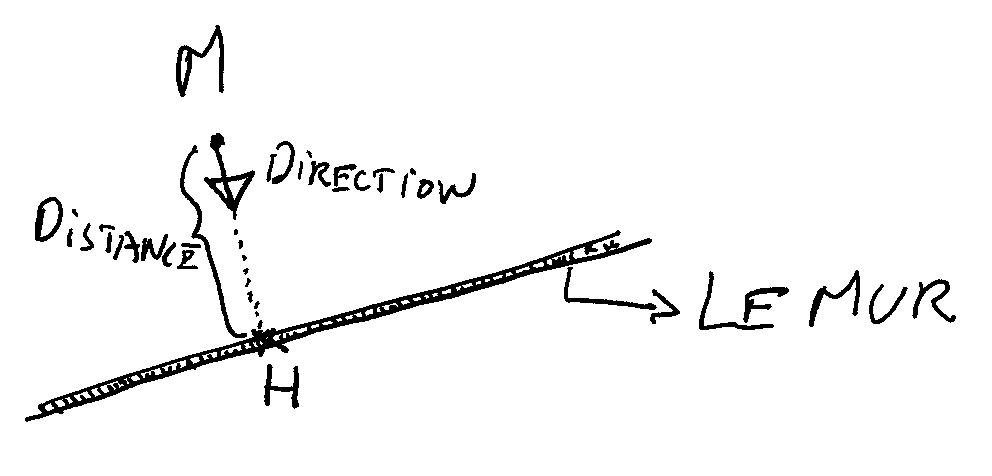 M
DiRECTION
DiSTANCE
LE MUR
H